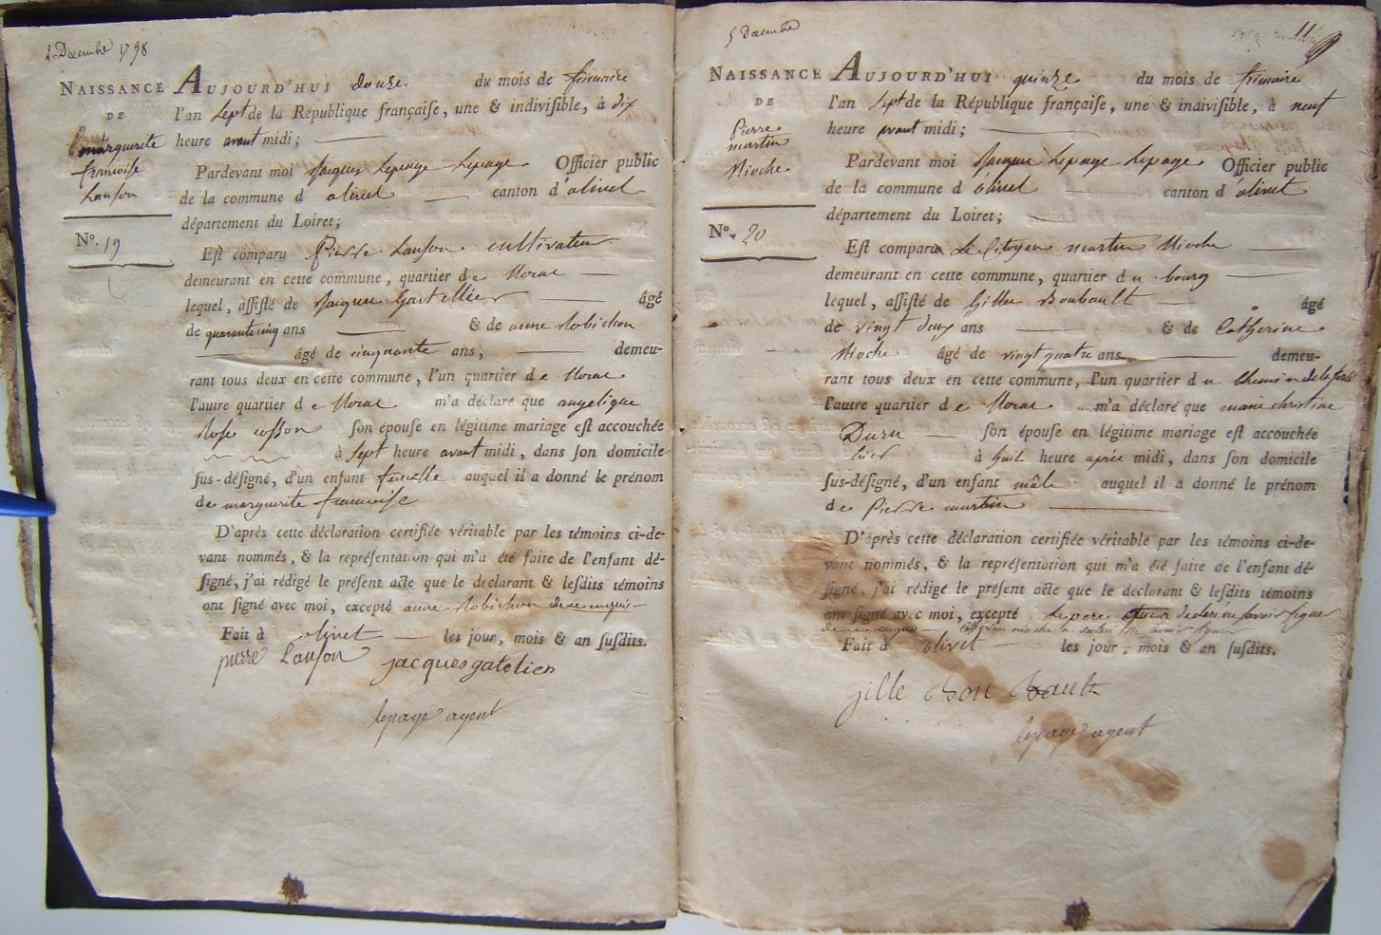 2 Decembre 1798
NAISSANCE
DE
marguerite
francoise
Lanson
No. 19
AUJOURD'HUI douze du mois de frimaire
l'an sept de la République françaiſe, une & indiviſible, à dix
heure avant midi;
Pardevant moi Jacques Lepage Lepage Officier public
de la commune d olivet canton d'olivet
département du Loiret;
Eſt comparu Pierre Lanson cultivateur
demeurant en cette commune, quartier de
lequel, aſſiſté de Jacques âgé
de quarante cinq ans & de anne Robichon
âgé de cinquante ans, demeu-
rant tous deux en cette commune, l'un quartier de
l'autre quartier de m'a déclaré que angelique
Rose cosson ſon épouſe en légitime mariage eſt accouchée
à sept heure avant midi, dans ſon domicile
ſus-déſigné, d'un enfant femelle auquel il a donné le prénom
de marguerite francoise
D'après cette déclaration certifiée véritable par les témoins ci-de-
vant nommés, & la repréſentation qui m'a été faite de l'enfant dé-
ſigné, j'ai rédigé le préſent acte que le déclarant & leſdits témoins
ont ſigné avec moi, excepté anne Robichon de ce enquis
Fait à olivet les jour, mois & an ſuſdits.
pierre Lanson jacques gatelien
lepage agent
5 Decembre
11
NAISSANCE
DE
Pierre
martin
Nioche
No. 20
AUJOURD'HUI quinze du mois de frimaire
l'an sept de la République françaiſe, une & indiviſible, à neuf
heure avant midi;
Pardevant moi Jacques Lepage Lepage Officier public
de la commune d'olivet canton d'olivet
département du Loiret;
Eſt comparu Le Citoyen martin Nioche
demeurant en cette commune, quartier du bourg
lequel, aſſiſté de Gille Boubault âgé
de vingt deux ans & de Catherine
Nioche âgé de vingt quatre ans demeu-
rant tous deux en cette commune, l'un quartier du
l'autre quartier de m'a déclaré que marie christine
Duru ſon épouſe en légitime mariage eſt accouchée
hier à huit heure après midi, dans ſon domicile
ſus-déſigné, d'un enfant mâle auquel il a donné le prénom
de Pierre martin
D'après cette déclaration certifiée véritable par les témoins ci-de-
vant nommés, & la repréſentation qui m'a été faite de l'enfant dé-
ſigné, j'ai rédigé le préſent acte que le déclarant & leſdits témoins
ont ſigné avec moi, excepté le pere declaré ne savoir signer
Fait à olivet les jour, mois & an ſuſdits.
gille Bou bault
lepage agent